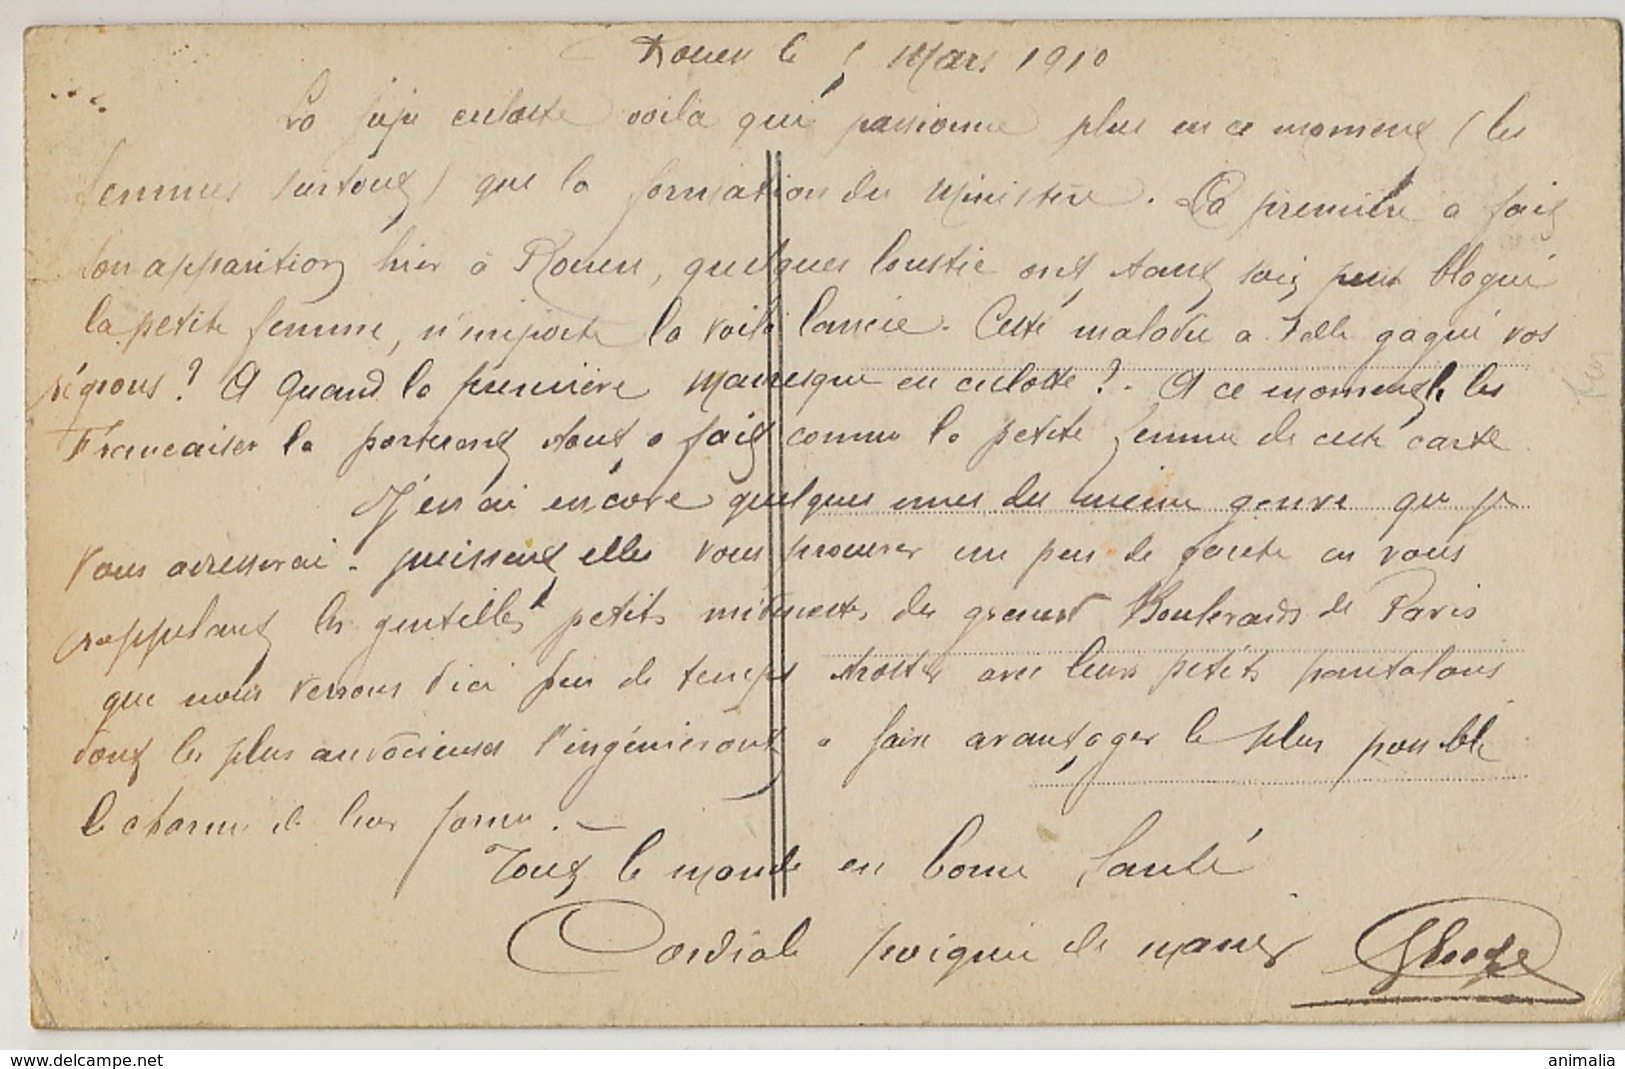 Rouen le Mars 1910
La jupe culotte voilà qui passionne plus en ce moment (les
femmes surtout) que la formation du Ministère. La première a fait
son apparition hier à Rouen, quelques loustic ont tant soit peut blagué
la petite femme, n'importe la voilà lancée. Cette maladie a t'elle gagné vos
régions? A quand la première Mauresque en culotte?. A ce moment les
Françaises la porteront tout a fait comme la petite femme de cette carte
J'en ai encore quelques unes du même genre que je
vous adresserai. puissent elles vous procurer un peu de gaieté en vous
rappelant les gentilles petits midinettes des grands Boulevards de Paris
que nous verrons d'ici peu de temps trotter avec leurs petits pantalons
dont les plus audacieuses s'ingénieront a faire avantager le plus possible
le charme de leur forme.
Tout le monde en bonne Santé
Cordiale poignée de mains
animalia
www.delcampe.net